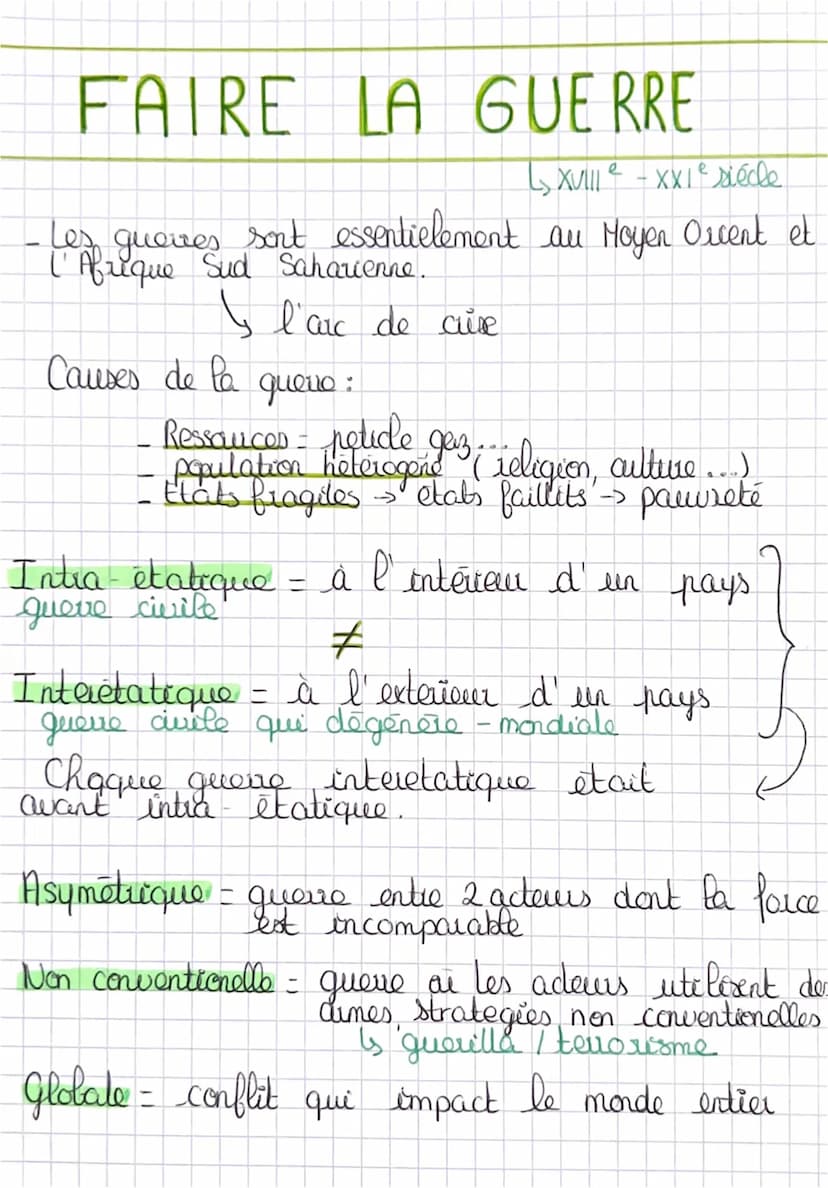 FAIRE LA GUERRE
↳ XVIIIe - XXIe siécle
- Les guerres sont essentielement au Moyen Orient et
l'Afrique Sud Saharienne.
↳ l'arc de crise
Causes de la guerre :
- Ressources = petrole gaz...
- population hétérogène (religion, culture ...)
- Etats fragiles → etats faillits → pauvreté
Intra-étatique = à l'intérieur d'un pays
guerre civile
≠
Interétatique = à l'exterieur d'un pays
guerre civile qui dégénère - mondiale
Chaque guerre interetatique était
avant intra-étatique.
Asymétrique = guerre entre 2 acteurs dont la force
est incomparable
Non conventionelle = guerre où les acteurs utilisent des
armes, strategies non conventionelles
↳ guerilla / terrorisme
Globale = conflit qui impact le monde entier